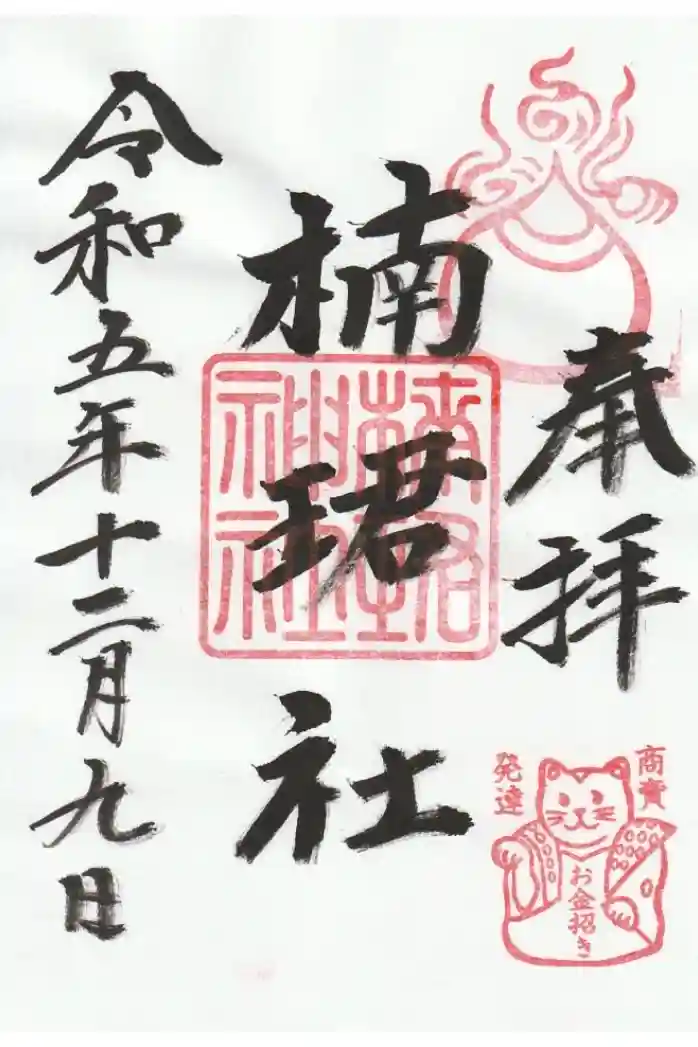 奉拝
楠珺社
楠珺
神社
令和五年十二月九日
商賣
発達
お金招き